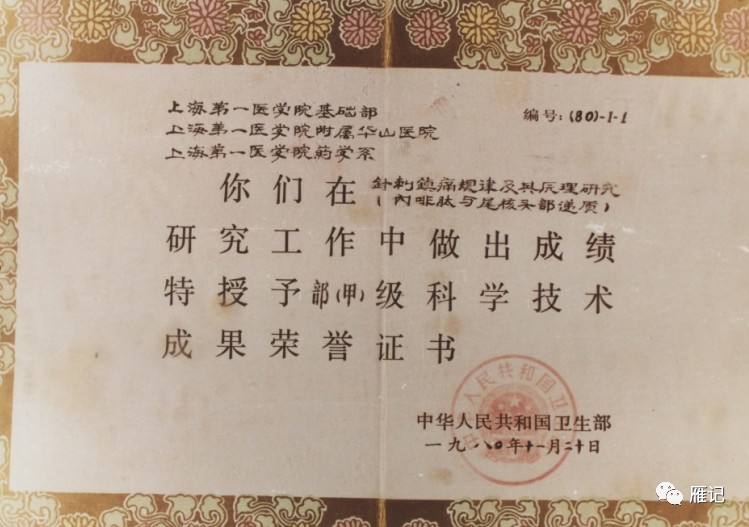 上海第一医学院基础部
编号:(80)-1-1
上海第一医学院附属华山医院
上海第一医学院药学系
你们在 針刺鎮痛規律及其原理研究
(内啡肽与尾核头部递质)
研究工作中做出成绩
特授予部(甲)级科学技术
成果荣誉证书
中华人民共和国卫生部
中华人民共和国卫生部
一九八〇年十一月二十日
雁记